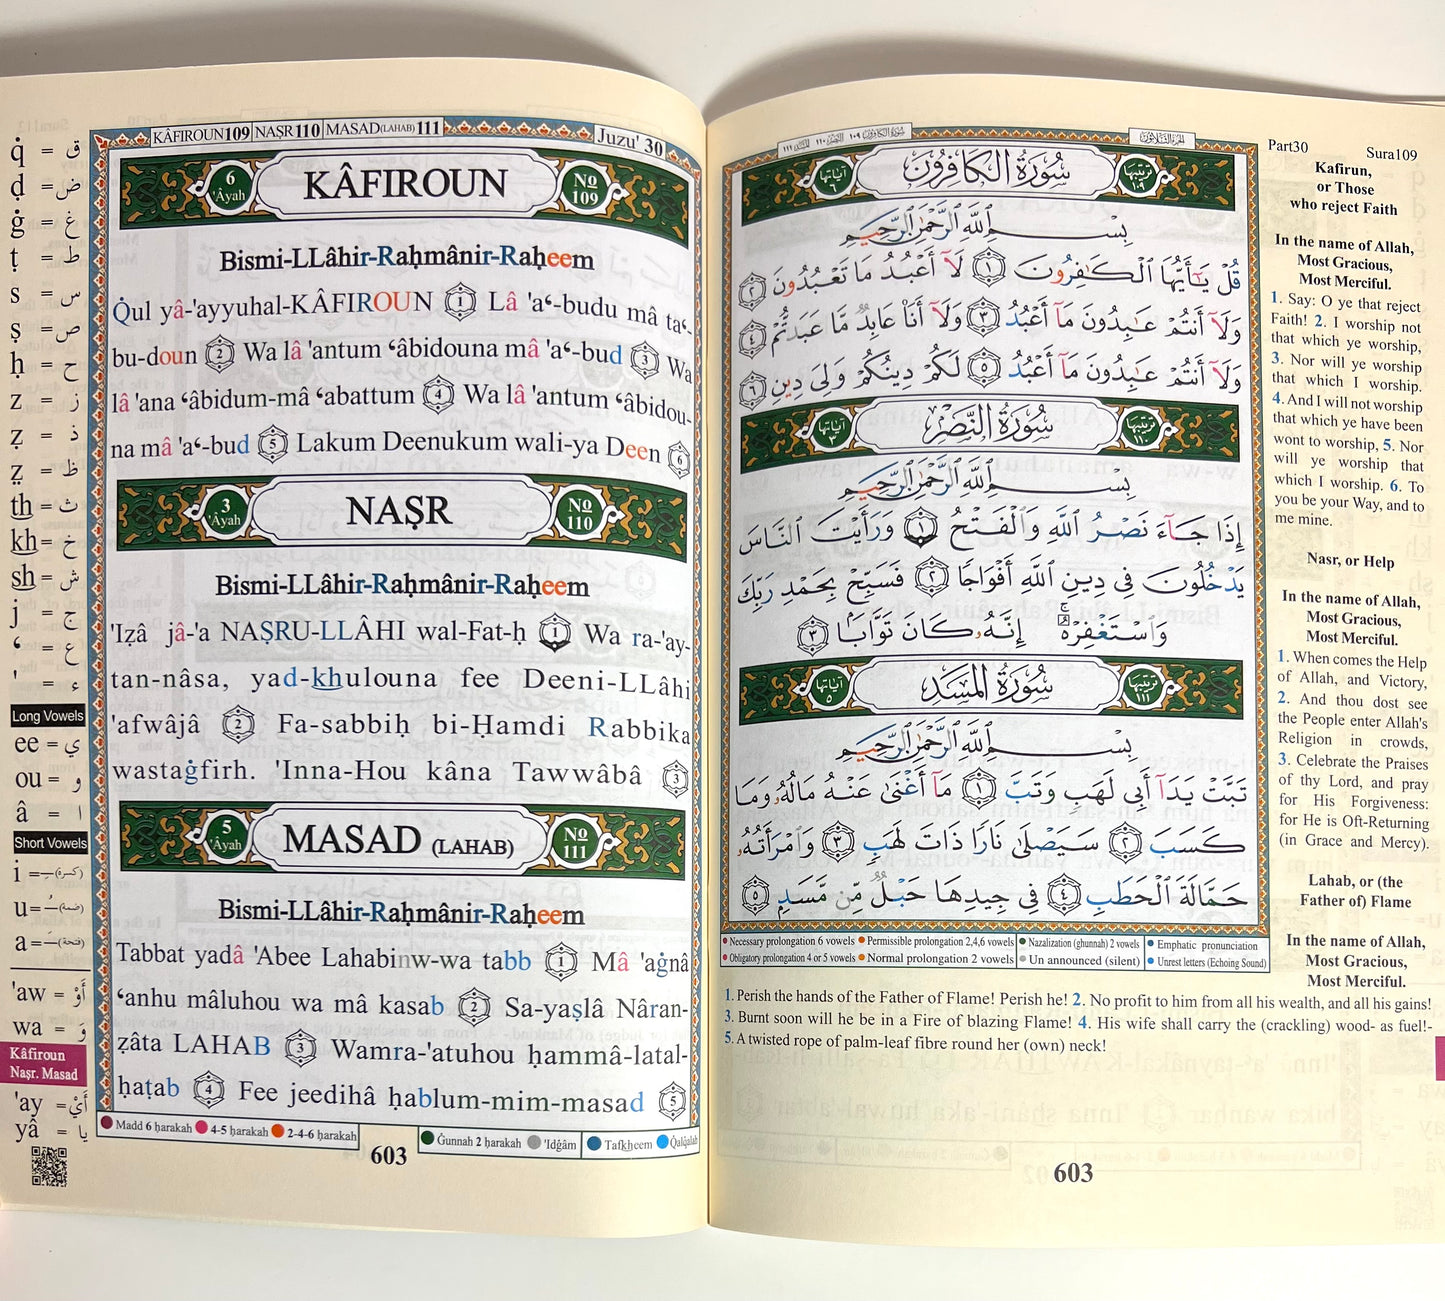 KÂFIROUN109 NAṢR110 MASAD(LAHAB)111
Juzu' 30
q̇ = ق
ḍ = ض
ġ = غ
ṭ = ط
s = س
ṣ = ص
ḥ = ح
z = ز
ẓ = ذ
ẓ = ظ
th = ث
kh = خ
sh = ش
j = ج
ʻ = ع
' = ء
Long Vowels
ee = ي
ou = و
â = ا
Short Vowels
i = (كسرة)
u = (ضمة)
a = (فتحة)
'aw = أَوْ
wa = وَ
Kâfiroun
Naṣr. Masad
'ay = أَيْ
yâ = يا
6 'Âyah
KÂFIROUN
No 109
Bismi-LLâhir-Raḥmânir-Raḥeem
Q̇ul yâ-'ayyuhal-KÂFIROUN 1 Lâ 'aʻ-budu mâ taʻ-
bu-doun 2 Wa lâ 'antum ʻâbidouna mâ 'aʻ-bud 3 Wa
lâ 'ana ʻâbidum-mâ ʻabattum 4 Wa lâ 'antum ʻâbidou-
na mâ 'aʻ-bud 5 Lakum Deenukum wali-ya Deen 6
3 'Âyah
NAṢR
No 110
Bismi-LLâhir-Raḥmânir-Raḥeem
'Iẓâ jâ-'a NAṢRU-LLÂHI wal-Fat-ḥ 1 Wa ra-'ay-
tan-nâsa, yad-khulouna fee Deeni-LLâhi
'afwâjâ 2 Fa-sabbiḥ bi-Ḥamdi Rabbika
wastaġfirh. 'Inna-Hou kâna Tawwâbâ 3
5 'Âyah
MASAD (LAHAB)
No 111
Bismi-LLâhir-Raḥmânir-Raḥeem
Tabbat yadâ 'Abee Lahabinw-wa tabb 1 Mâ 'aġnâ
ʻanhu mâluhou wa mâ kasab 2 Sa-yaṣlâ Nâran-
ẓâta LAHAB 3 Wamra-'atuhou ḥammâ-latal-
ḥaṭab 4 Fee jeedihâ ḥablum-mim-masad 5
Madd 6 ḥarakah 4-5 ḥarakah 2-4-6 ḥarakah
Ġunnah 2 ḥarakah 'Idġâm Tafkheem Q̇alq̇alah
603
سُورَةُ الكافِرُون ١٠٩ النَّصْر ١١٠ المَسَد ١١١
الجزء الثلاثون
آياتها ٦
سُورَةُ الكَافِرُونَ
ترتيبها ١٠٩
بِسْمِ اللَّهِ الرَّحْمَٰنِ الرَّحِيمِ
قُلْ يَٰٓأَيُّهَا ٱلْكَٰفِرُونَ ١ لَآ أَعْبُدُ مَا تَعْبُدُونَ ٢
وَلَآ أَنتُمْ عَٰبِدُونَ مَآ أَعْبُدُ ٣ وَلَآ أَنَا۠ عَابِدٌ مَّا عَبَدتُّمْ ٤
وَلَآ أَنتُمْ عَٰبِدُونَ مَآ أَعْبُدُ ٥ لَكُمْ دِينُكُمْ وَلِىَ دِينِ ٦
آياتها ٣
سُورَةُ النَّصْرِ
ترتيبها ١١٠
بِسْمِ اللَّهِ الرَّحْمَٰنِ الرَّحِيمِ
إِذَا جَآءَ نَصْرُ ٱللَّهِ وَٱلْفَتْحُ ١ وَرَأَيْتَ ٱلنَّاسَ
يَدْخُلُونَ فِى دِينِ ٱللَّهِ أَفْوَاجًا ٢ فَسَبِّحْ بِحَمْدِ رَبِّكَ
وَٱسْتَغْفِرْهُ ۚ إِنَّهُۥ كَانَ تَوَّابًۢا ٣
آياتها ٥
سُورَةُ المَسَدِ
ترتيبها ١١١
بِسْمِ اللَّهِ الرَّحْمَٰنِ الرَّحِيمِ
تَبَّتْ يَدَآ أَبِى لَهَبٍ وَتَبَّ ١ مَآ أَغْنَىٰ عَنْهُ مَالُهُۥ وَمَا
كَسَبَ ٢ سَيَصْلَىٰ نَارًا ذَاتَ لَهَبٍ ٣ وَٱمْرَأَتُهُۥ
حَمَّالَةَ ٱلْحَطَبِ ٤ فِى جِيدِهَا حَبْلٌ مِّن مَّسَدٍۭ ٥
Necessary prolongation 6 vowels Permissible prolongation 2,4,6 vowels Nazalization (ghunnah) 2 vowels Emphatic pronunciation
Obligatory prolongation 4 or 5 vowels Normal prolongation 2 vowels Un announced (silent) Unrest letters (Echoing Sound)
Part30 Sura109
Kafirun,
or Those
who reject Faith
In the name of Allah,
Most Gracious,
Most Merciful.
1. Say: O ye that reject
Faith! 2. I worship not
that which ye worship,
3. Nor will ye worship
that which I worship.
4. And I will not worship
that which ye have been
wont to worship, 5. Nor
will ye worship that
which I worship. 6. To
you be your Way, and to
me mine.
Nasr, or Help
In the name of Allah,
Most Gracious,
Most Merciful.
1. When comes the Help
of Allah, and Victory,
2. And thou dost see
the People enter Allah's
Religion in crowds,
3. Celebrate the Praises
of thy Lord, and pray
for His Forgiveness:
for He is Oft-Returning
(in Grace and Mercy).
Lahab, or (the
Father of) Flame
In the name of Allah,
Most Gracious,
Most Merciful.
1. Perish the hands of the Father of Flame! Perish he! 2. No profit to him from all his wealth, and all his gains!
3. Burnt soon will he be in a Fire of blazing Flame! 4. His wife shall carry the (crackling) wood- as fuel!-
5. A twisted rope of palm-leaf fibre round her (own) neck!
603